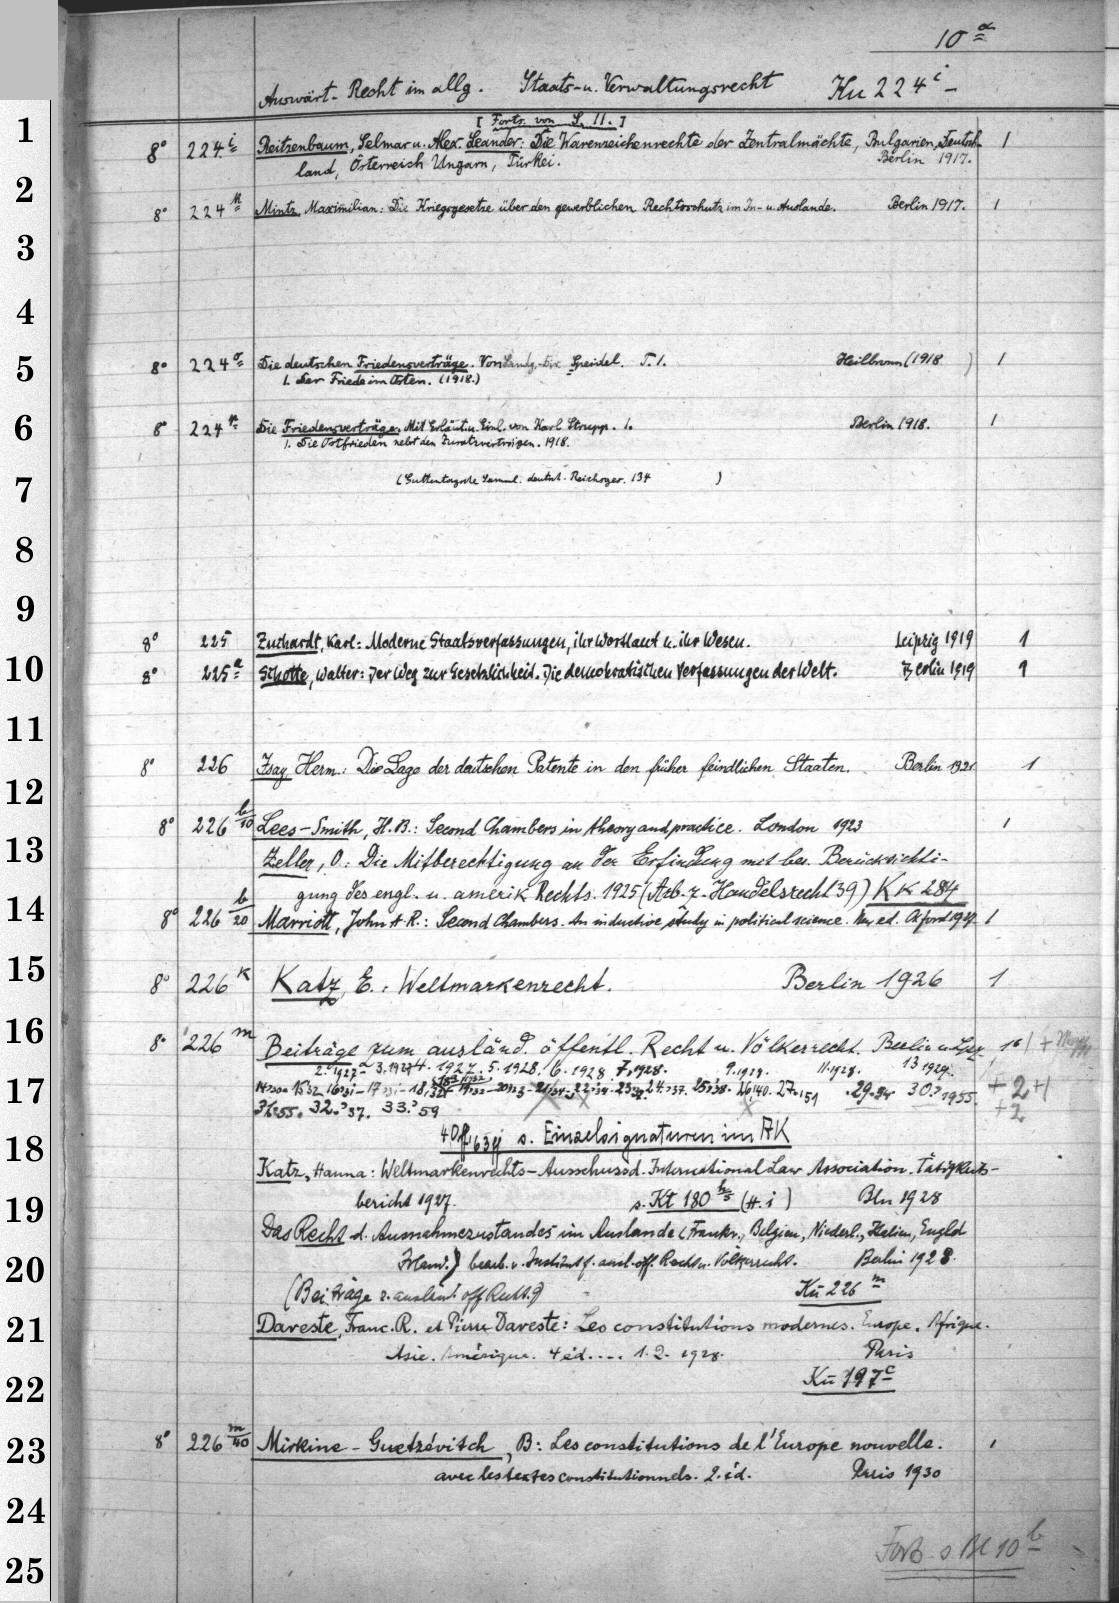 10 a
Auswärt. Recht im allg. Staats- u. Verwaltungsrecht Ku 224 i -
[Forts. von S. 11.]
1
8° 224 i Reitzenbaum, Selmar u. Alex. Leander: Die Warenzeichenrechte der Zentralmächte, Bulgarien, Deutsch- 1
land, Österreich Ungarn, Türkei. Berlin 1917.
2
8° 224 Mintz, Maximilian: Die Kriegsgesetze über den gewerblichen Rechtsschutz im In- u. Auslande. Berlin 1917. 1
3
4
5
8° 224 o Die deutschen Friedensverträge. Von Speidel. T. 1. Heilbronn (1918 ) 1
1. Der Friede im Osten. (1918.)
6
8° 224 Die Friedensverträge. Mit Erläut. u. Einl. von Karl Strupp. 1. Berlin 1918. 1
1. Die Ostfrieden nebst den Zusatzverträgen. 1918.
7
(Guttentagsche Samml. deutsch. Reichsger. 134 )
8
9
8° 225 Zuchardt, Karl: Moderne Staatsverfassungen, ihr Wortlaut u. ihr Wesen. Leipzig 1919 1
10
8° 225 a Schotte, Walter: Der Weg zur Gesetzlichkeit. Die demokratischen Verfassungen der Welt. Berlin 1919 1
11
8° 226 Isay Herm.: Die Lage der deutschen Patente in den früher feindlichen Staaten. Berlin 1921 1
12
8° 226 b/10 Lees-Smith, H.B.: Second Chambers in theory and practice. London 1923 1
13
Zeller, O: Die Mitberechtigung an der Erfindung mit bes. Berücksichti-
gung des engl. u. amerik Rechts. 1925 (Arb. z. Handelsrecht 39) Kk 284
14
8° 226 b/20 Marriott, John A R.: Second Chambers. An inductive study in political science. New ed. Oxford 1927. 1
15
8° 226 k Katz, E.: Weltmarkenrecht. Berlin 1926 1
16
8° 226 m Beiträge zum ausländ. öffentl. Recht u. Völkerrecht. Berlin u. Lpz.
2. 1927 3. 1927 4. 1927. 5. 1928. 6. 1928. 7. 1928. 9. 1928. 11. 1928. 13 1929.
17
27. 1951 29. 54 30. 1955. + 2 +1
31. 55. 32. 37. 33. 59 +2
40 ff, 63 ff s. Einzelsignaturen im AK
18
Katz, Hanna: Weltmarkenrechts-Ausschuss d. International Law Association. Tätigkeits-
19
bericht 1927. s. Kt 180 h/5 (H. i) Bln 1928
Das Recht d. Ausnahmezustandes im Auslande (Frankr., Belgien, Niederl., Italien, England
20
Irland.) bearb. v. Institut f. ausl. öff. Recht u. Völkerrecht. Berlin 1928.
(Beiträge z. ausländ. öff Recht. 9) Ku 226 m
21
Dareste, Franc. R. et Pierre Dareste: Les constitutions modernes. Europe. Afrique.
Asie. Amérique. 4 éd. ... 1. 2. 1928. Paris
22
Ku 197 c
23
8° 226 m/40 Mirkine-Guetzévitch, B: Les constitutions de l'Europe nouvelle. 1
avec les textes constitutionnels. 2. éd. Paris 1930
24
Forts. s Bl 10 b
25